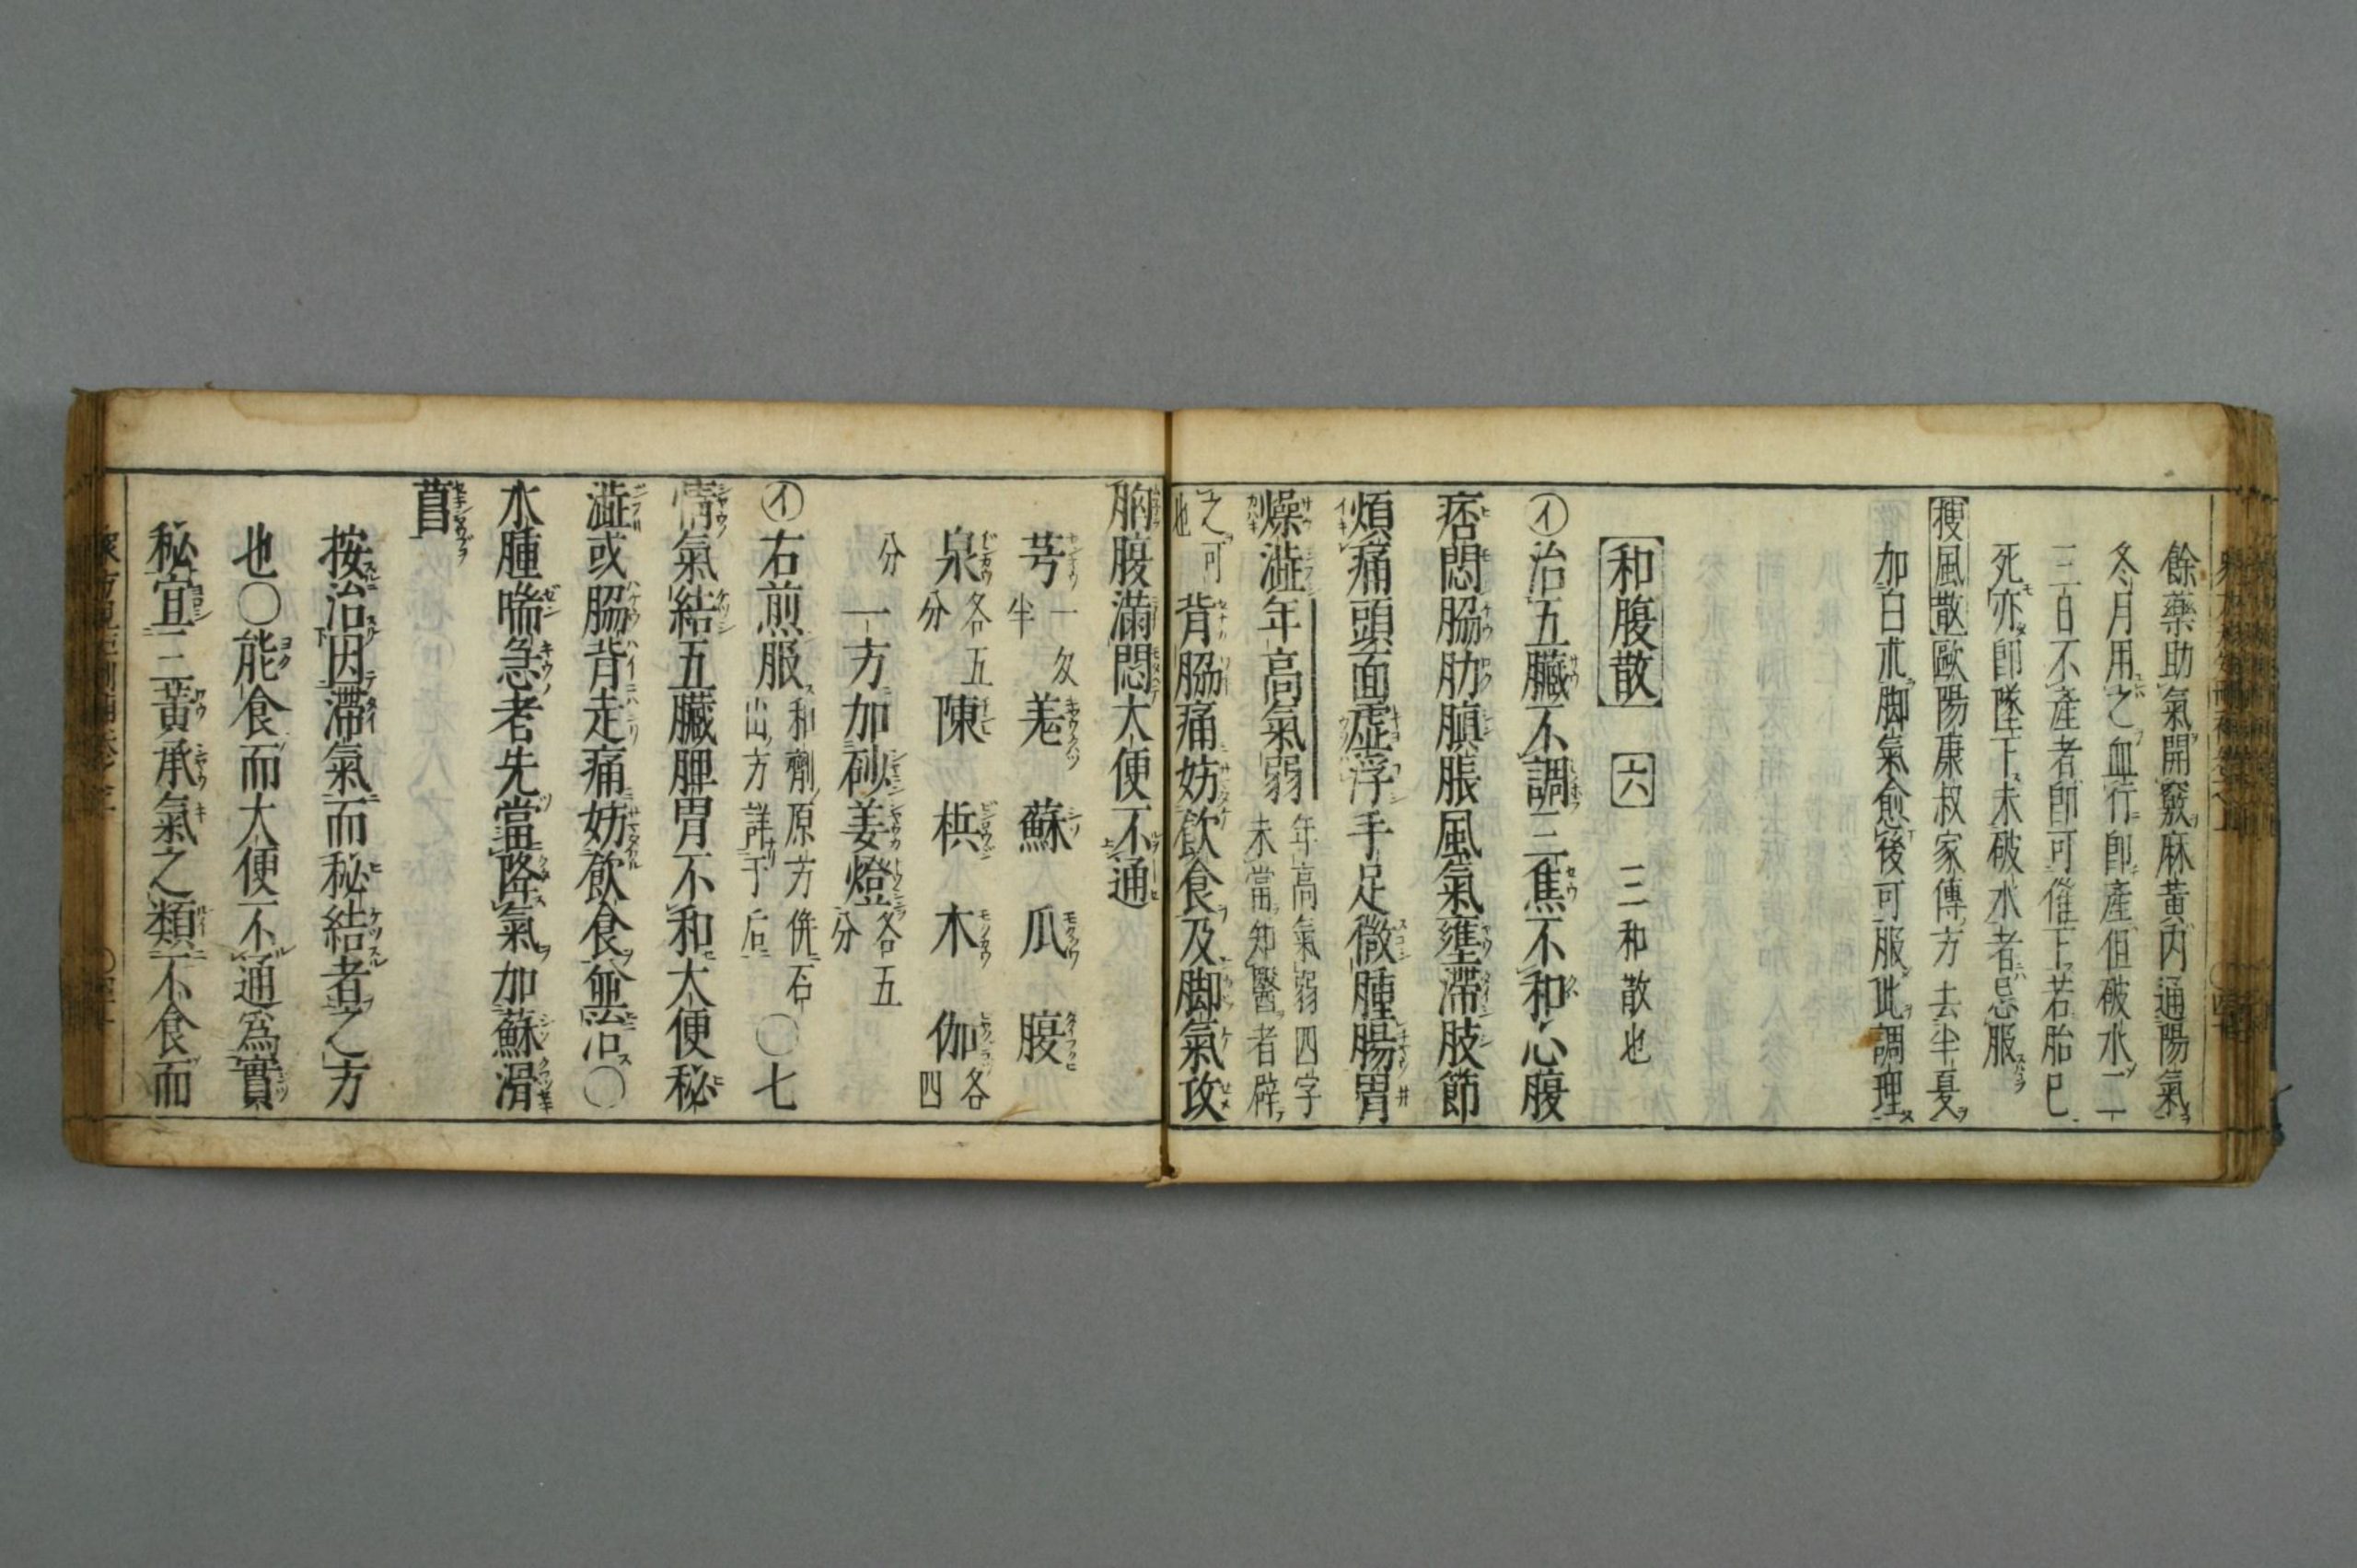 餘藥助氣開竅麻黃内通陽氣
冬月用之血行卽產但破水二
三日不產者卽可催下若胎已
死亦卽墜下未破水者忌服
搜風散歐陽康叔家傳方去半夏
加白朮脚氣愈後可服此調理
和腹散 六 三和散也
㋑治五臟不調三焦不和心腹
痞悶脇肋䐜脹風氣壅滯肢節
煩痛頭面虛浮手足微腫腸胃
燥澁年高氣弱年高氣弱四字未當知醫者辟
之可也背脇痛妨飲食及脚氣攻
胸腹滿悶大便不通
芎一匁半 羗 蘇 瓜 腹
泉各五分 陳 梹 木 伽各四
分 一方加砂姜燈各五分
㋑右煎服和劑原方併石出方詳于后〇七
情氣結五臟脾胃不和大便秘
澁或脇背走痛妨飲食並治〇
水腫喘急者先當降氣加蘇滑
菖
按治因滯氣而秘結者之方
也〇能食而大便不通爲實
秘宜三黃承氣之類不食而